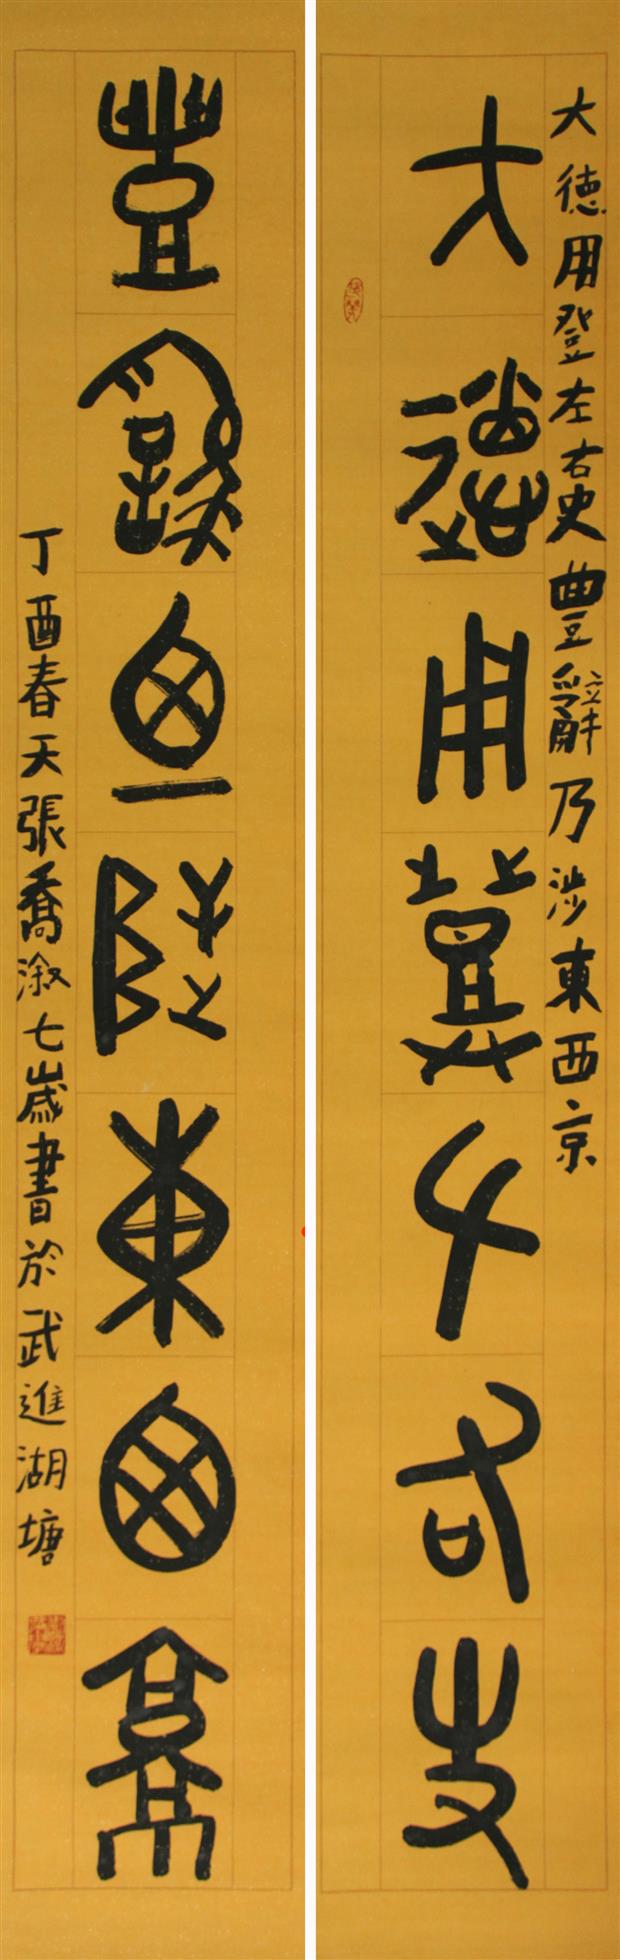 大德用登左右史豊辭乃涉東西京
大德用登左右史
豊東西京
丁酉春天張喬溆七歲書於武進湖塘